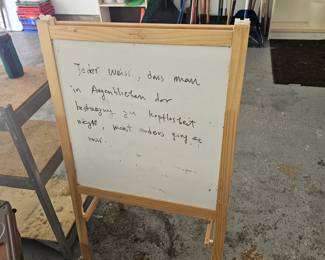 Jeder weiss, dass man
in Augenblicken der
zu kopflosigkeit
neigt, nicht anders ging es
mir.